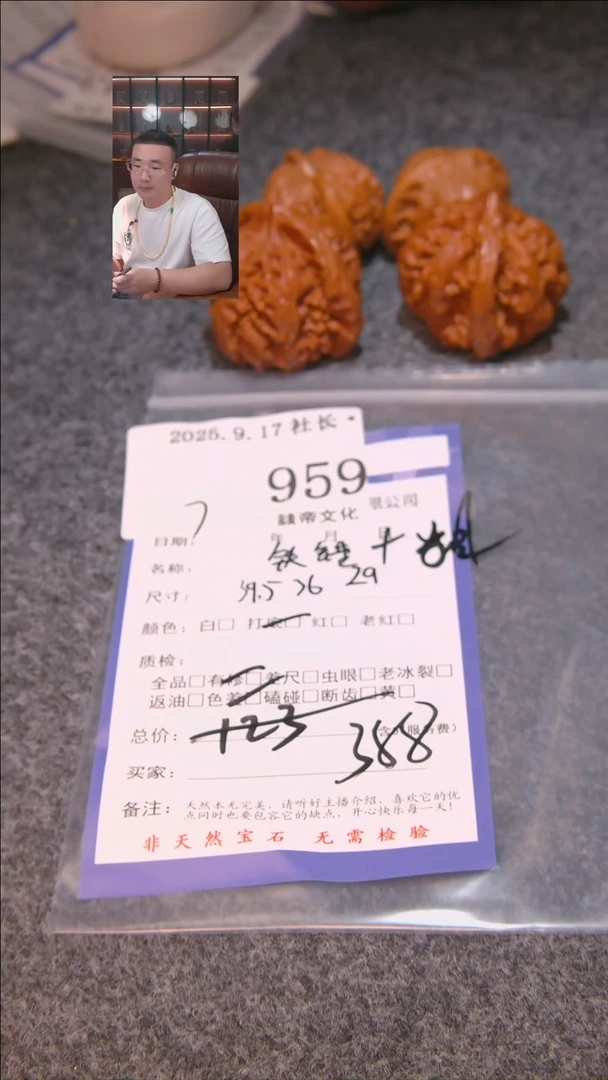 2025.9.17 社长
959
限公司
帝文化
日期: 年 月 日
名称:
尺寸: 39.5 36 29
颜色: 白□ 打底□ 红□ 老红□
质检:
全品□有修□差尺□虫眼□老冰裂□
返油□色差□磕碰□断齿□黄□
总价: +23 388 服务费)
买家:
备注: 天然本无完美,请听好主播介绍,喜欢它的优
点同时也要包容它的缺点,开心快乐每一天!
非天然宝石 无需检验